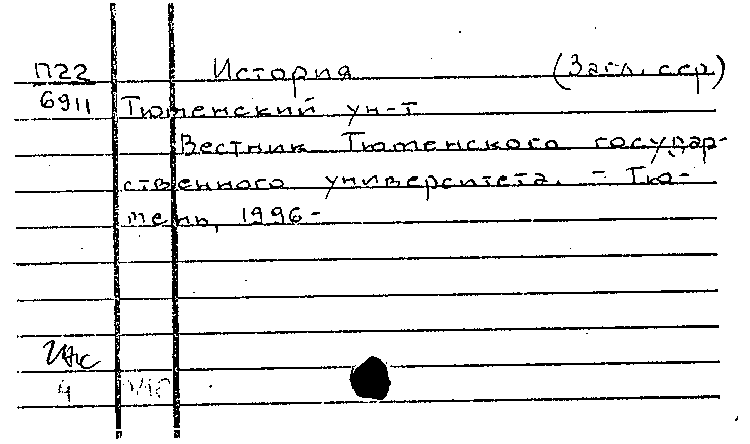 П22 История (Загл. сер.)
6911 Тюменский ун-т
Вестник Тюменского государ-
ственного университета. - Тю-
мень, 1996-
4